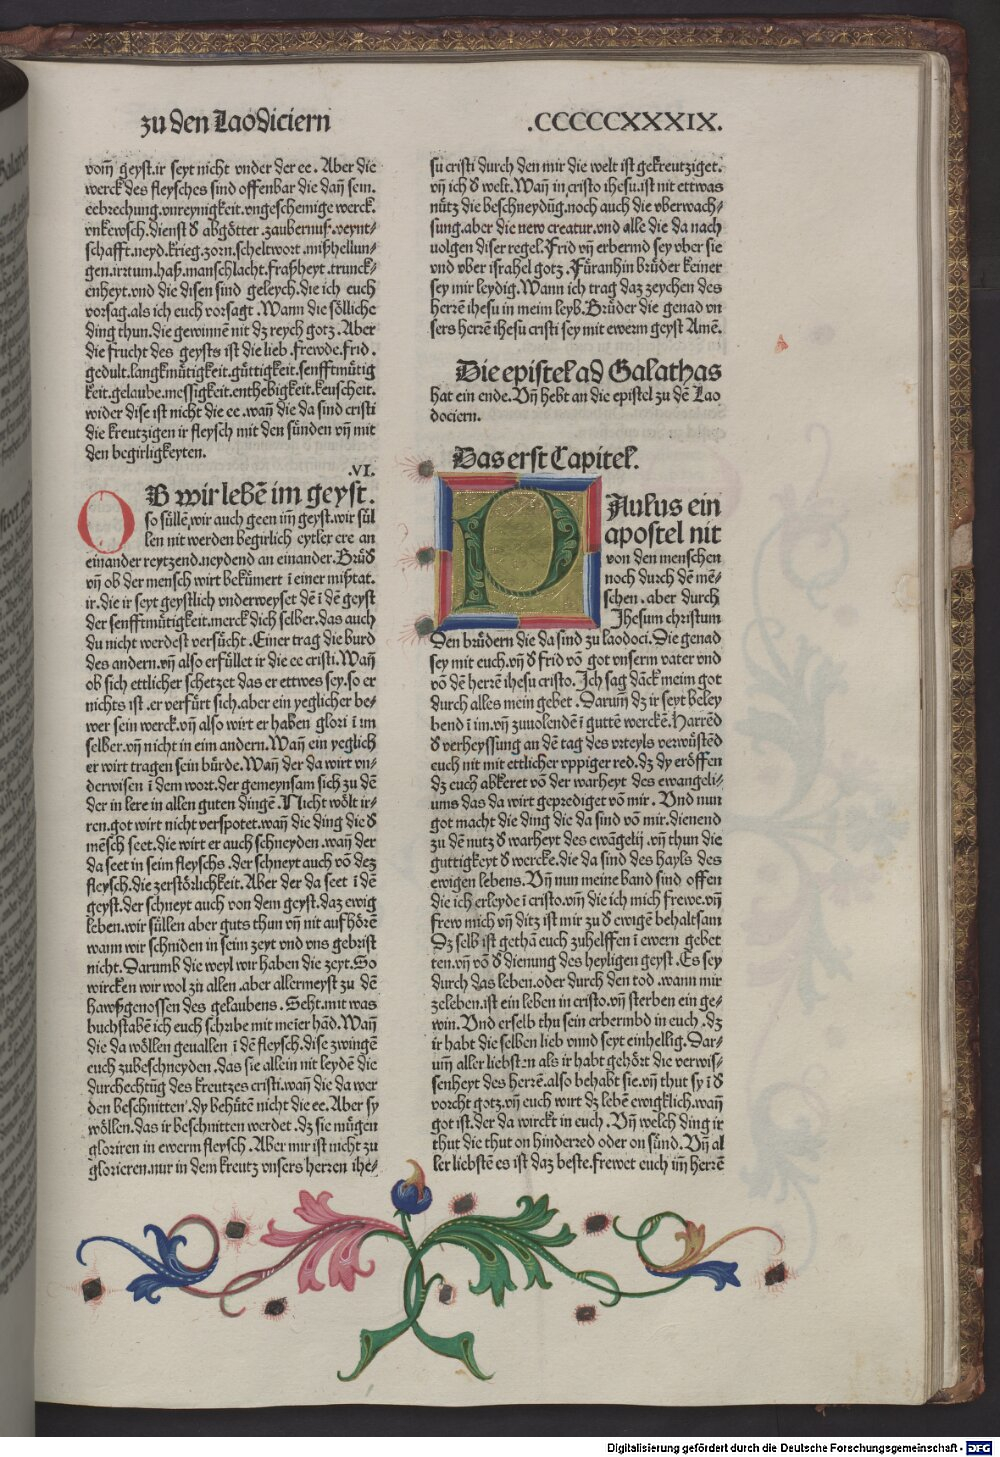 zu den Laodiciern
.CCCCCXXXIX.
vom̄ geyst.ir seyt nicht vnder der ee. Aber die
werck des fleysches sind offenbar die dañ sein.
eebrechung.vnreynigkeit.vngeschemige werck.
vnkewsch.dienst d̕ abgötter.zaubernuß.veynt⸗
schafft.neyd.krieg.zorn.scheltwort.mißhellun⸗
gen.irrtum.haß.manschlacht.fraßheyt.trunck⸗
enheyt.vnd die disen sind geleych.die ich euch
vorsag.als ich euch vorsagt. Wann die söliche
ding thun.die gewinnē nit dz reych gotz. Aber
die frucht des geysts ist die lieb.frewde.frid.
gedult.langkmütigkeit.güttigkeit.senfftmütig
keit.gelaube.messigkeit.enthebigkeit.keuscheit.
wider dise ist nicht die ee.wañ die da sind cristi
die kreutzigen ir fleysch mit den sünden vñ mit
den begirligkeyten.
.VI.
OB wir lebē im geyst.
so süllē wir auch geen im̄ geyst.wir sül
len nit werden begirlich eytler ere an
einander reytzend.neydend an einander.Brüd̕
vñ ob der mensch wirt bekümert ī einer mißtat.
ir.die ir seyt geystlich vnderweyset dē ī dē geyst
der senfftmütigkeit.merck dich selber.das auch
du nicht werdest versücht.Einer trag die burd
des andern.vñ also erfüllet ir die ee cristi.Wañ
ob sich ettlicher schetzet das er ettwes sey.so er
nichts ist.er verfürt sich.aber ein yeglicher be⸗
wer sein werck.vñ also wirt er haben glori ī im
selber.vñ nicht in eim andern.Wañ ein yeglich
er wirt tragen sein bürde.Wañ der da wirt vn⸗
derwisen ī dem wort.der gemeynsam sich zu dē
der in lere in allen guten dingē.Nicht wölt ir⸗
ren.got wirt nicht verspotet.wañ die ding die d̕
mēsch seet.die wirt er auch schneyden.wañ der
da seet in seim fleyschs.der schneyt auch vō dez
fleysch.die zerstörlichkeit.Aber der da seet ī dē
geyst.der schneyt auch von dem geyst.daz ewig
leben.wir süllen aber guts thun vñ nit aufhörē
wann wir schniden in seim zeyt vnd vns gebrist
nicht.Darumb die weyl wir haben die zeyt.So
wircken wir wol zu allen.aber allermeyst zu dē
hawßgenossen des gelaubens. Seht.mit was
buchstabē ich euch schribe mit meīer hād.Wañ
die da wöllen geuallen ī dē fleysch.dise zwingē
euch zubeschneyden.das sie allein nit leydē die
durchechtūg des kreutzes cristi.wañ die da wer
den beschnitten.dy behütē nicht die ee.Aber sy
wöllen.das ir beschnitten werdet.dz sie mügen
gloriren in ewerm fleysch.Aber mir ist nicht zu
glorieren.nur in dem kreutz vnsers herren ihe⸗
su cristi durch den mir die welt ist gekreutziget.
vñ ich d̕ welt.Wañ in cristo ihesu.ist nit ettwas
nütz die beschneydūg.noch auch die vberwach⸗
sung.aber die new creatur.vnd alle die da nach
uolgen diser regel.Frid vñ erbermd sey vber sie
vnd vber israhel gotz.Füranhin brüder keiner
sey mir leydig.Wann ich trag daz zeychen des
herrē ihesu in meim leyb.Brüder die genad vn
sers herrē ihesu cristi sey mit ewerm geyst Amē.
Die epistel ad Galathas
hat ein ende. Vñ hebt an die epistel zu dē Lao
dociern.
Das erst Capitel.
PAulus ein
apostel nit
von den menschen
noch durch dē mē⸗
schen.aber durch
Jhesum christum
Den brüdern die da sind zu laodoci.Die genad
sey mit euch.vñ d̕ frid vō got vnserm vater vnd
vō dē herrē ihesu cristo.Jch sag dāck meim got
durch alles mein gebet.Darum̄ dz ir seyt beley
bend ī im.vñ zuuolendē ī guttē werckē.Harrēd
d̕ verheyssung an dē tag des vrteyls verwüstēd
euch nit mit ettlicher vppiger red.dz dy eröffen
dz euch abkeret vō der warheyt des ewangeli⸗
ums das da wirt geprediget vō mir. Vnd nun
got macht die ding die da sind vō mir.dienend
zu dē nutz d̕ warheyt des ewāgelij.vñ thun die
guttigkeyt d̕ wercke.die da sind des hayls des
ewigen lebens.Vñ nun meine band sind offen
die ich erleyde ī cristo.vñ die ich mich frewe.vñ
frew mich vñ ditz ist mir zu d̕ ewigē behaltsam
Dz selb ist gethā euch zuhelffen ī ewern gebet
ten.vñ vō d̕ dienung des heyligen geyst.Es sey
durch das leben.oder durch den tod.wann mir
zeleben.ist ein leben in cristo.vñ sterben ein ge⸗
win.Vnd erselb thu sein erbermbd in euch.dz
ir habt die selben lieb vnnd seyt einhellig.Dar⸗
um̄ aller liebsten als ir habt gehört die verwis⸗
senheyt des herrē.also behabt sie.vñ thut sy ī d̕
vorcht gotz.vñ euch wirt dz lebē ewigklich.wañ
got ist.der da wirckt in euch. Vñ welch ding ir
thut die thut on hinderred oder on sünd.Vñ al
ler liebstē es ist daz beste.frewet euch im̄ herrē
Digitalisierung gefördert durch die Deutsche Forschungsgemeinschaft - DFG